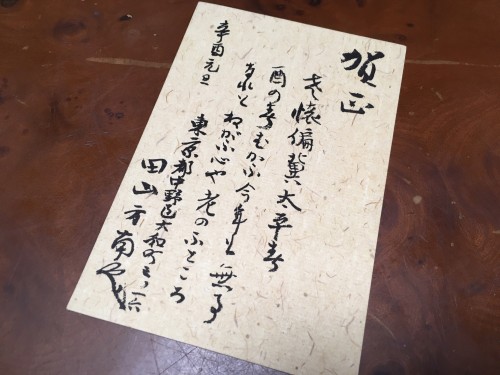 賀正
老懐偏冀太平春
酉の春むかふ今年も無事
なれとねがふ心や老のふところ
辛酉元旦
東京都中野区大和町
田山方南